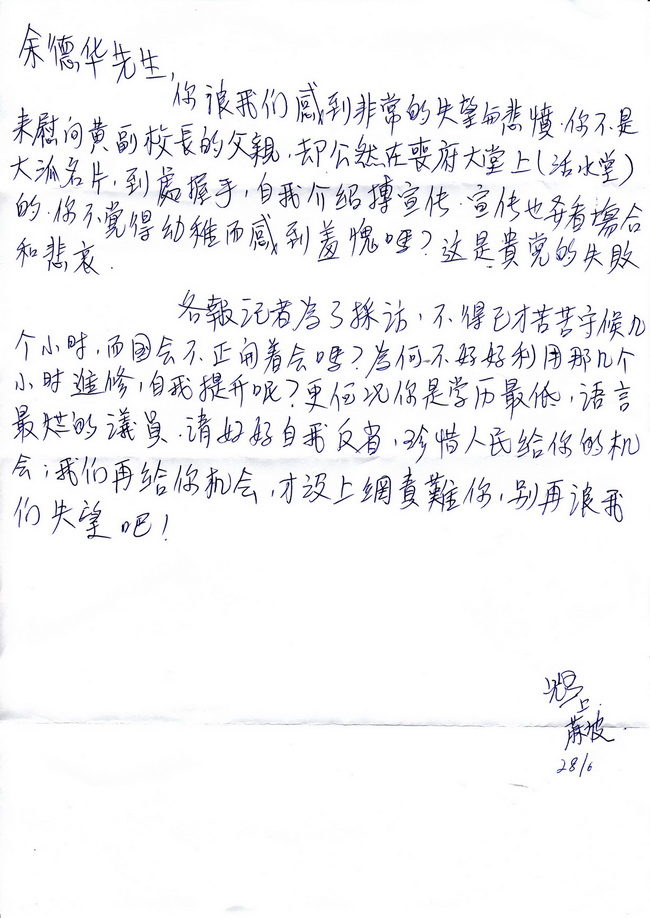 余德华先生,
你令我们感到非常的失望与悲憤.你不是
来慰问黄副校長的父親,却公然在喪府大堂上(活水堂)
大派名片,到處握手,自我介绍搏宣传.宣传也要看場合
的.你不覺得幼稚而感到羞愧嗎?这是貴党的失敗
和悲哀.
各報记者為了採访,不得已才苦苦守候几
个小时,而国会不正開着会嗎?為何不好好利用那几个
小时進修,自我提升呢?更何况你是学历最低,语言
最烂的議員.请好好自我反省,珍惜人民给你的机
会;我们再给你机会,才没上網責難你,别再令我
们失望吧!
上
蔴坡
28/6